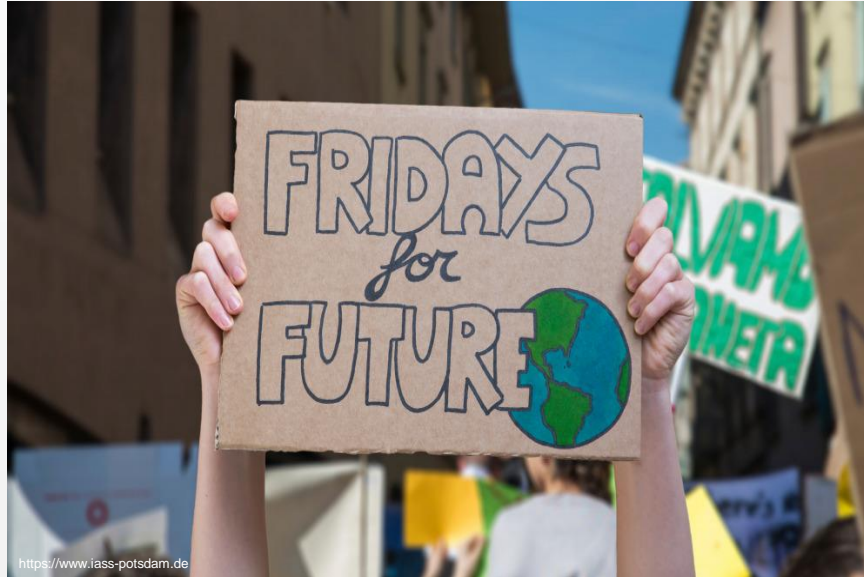 FRIDAYS
for
FUTURE
https://www.iass-potsdam.de